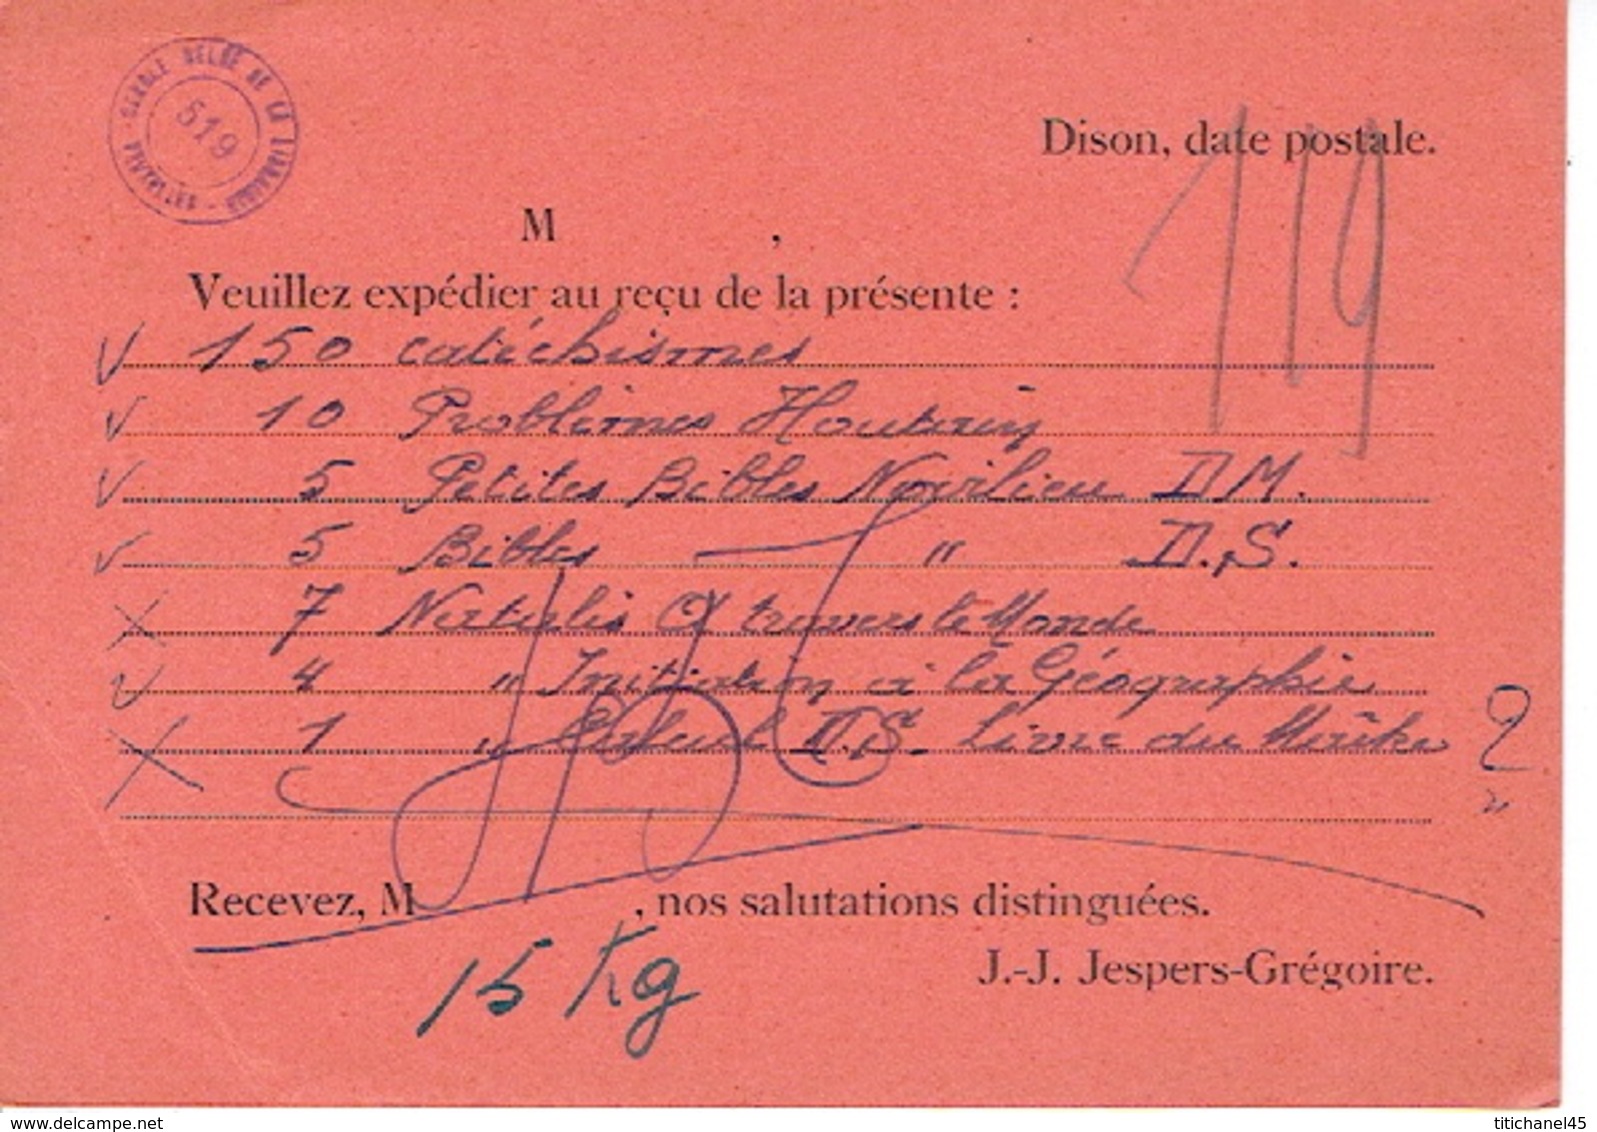 CERCLE BELGE DE LA LIBRAIRIE
519
Dison, date postale.
119
M ,
Veuillez expédier au reçu de la présente :
150 catéchismes
10 Problèmes
5 Petites Bibles D M.
5 Bibles — " D.S.
7 Natalis à travers le Monde
4 " Initiation à la Géographie
1 " Calcul D.S. Livre du Maître
2
Recevez, M , nos salutations distinguées.
15 Kg
J.-J. Jespers-Grégoire.
delcampe.net
titichanel45